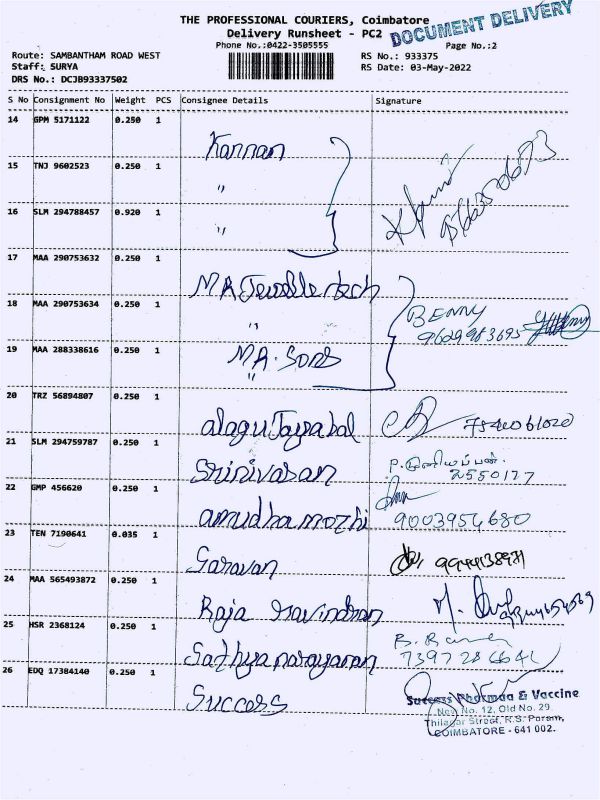 THE PROFESSIONAL COURIERS, Coimbatore
DOCUMENT DELIVERY
Delivery Runsheet - PC2
Phone No.:0422-3505555
Page No.:2
Route: SAMBANTHAM ROAD WEST
RS No.: 933375
Staff: SURYA
RS Date: 03-May-2022
DRS No.: DCJB93337502
S No Consignment No Weight PCS Consignee Details Signature
14 GPM 5171122 0.250 1
Kannan
15 TNJ 9602523 0.250 1
"
16 SLM 294788457 0.920 1
"
17 MAA 290753632 0.250 1
MR Jewellertech
18 MAA 290753634 0.250 1
"
BENNY
9629983695
19 MAA 288338616 0.250 1
MA. Sons
"
20 TRZ 56894807 0.250 1
21 SLM 294759787 0.250 1
Srinivasan
2550177
22 GMP 456620 0.250 1
amudhamozhi
9003954680
23 TEN 7190641 0.035 1
Saravan
24 MAA 565493872 0.250 1
Raja ravindran
25 HSR 2368124 0.250 1
Sathyanarayanan
7397286641
26 EDQ 17384140 0.250 1
Success
Success Pharmaa & Vaccine
New No. 12, Old No. 29,
Thilagar Street, R.S. Puram,
COIMBATORE - 641 002.